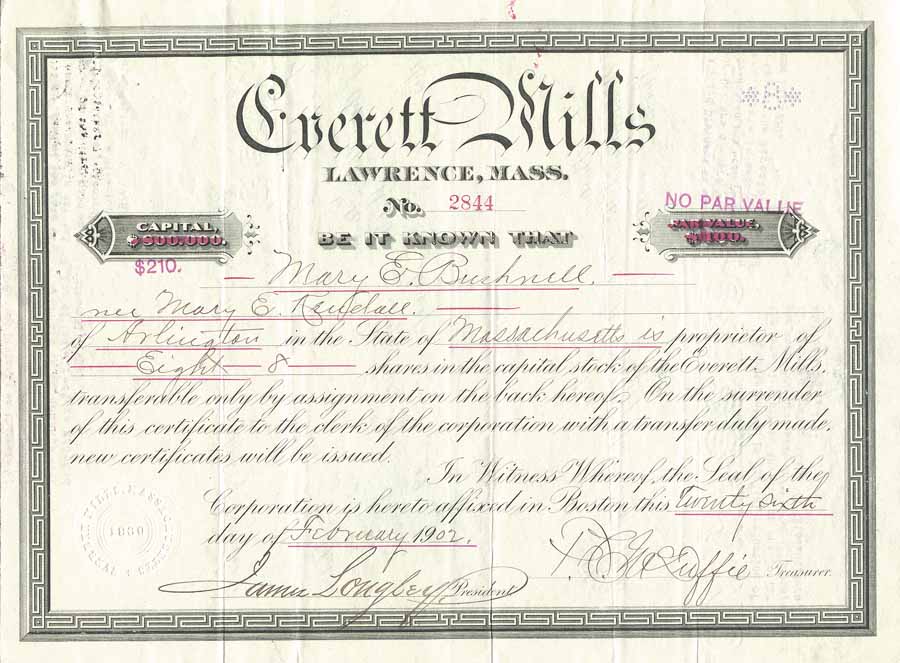 Everett Mills
*8*
LAWRENCE, MASS.
No. 2844
NO PAR VALUE
CAPITAL,
$800.000.
PAR VALUE,
$100.
BE IT KNOWN THAT
$210.
Mary E. Bushnell.
nee Mary E. Kendall.
of Arlington in the State of Massachusetts is proprietor of
Eight 8 shares in the capital stock of the Everett Mills,
transferable only by assignment on the back hereof. On the surrender
of this certificate to the clerk of the corporation with a transfer duly made,
new certificates will be issued.
In Witness Whereof, the Seal of the
Corporation is hereto affixed in Boston this Twenty sixth
day of February 1902.
James Longley President
McDuffie Treasurer